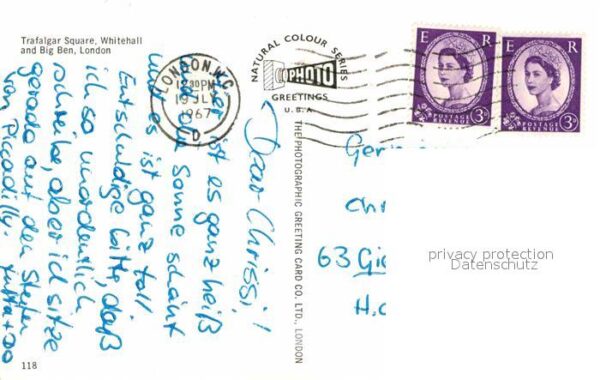 Trafalgar Square, Whitehall
and Big Ben, London
LONDON. W.C.
12.30PM
19 JLY
1967
D
NATURAL COLOUR SERIES
PHOTO
GREETINGS
U.S.A
E R
POSTAGE
REVENUE
3D
E R
POSTAGE
REVENUE
3D
Dear Chrissi!
Hier ist es ganz heiß
die Sonne scheint
und es ist ganz toll
Entschuldige bitte, daß
ich so unordentlich
schreibe, aber ich sitze
gerade auf den Stufen
von Piccadilly. Jutta + DO
THE PHOTOGRAPHIC GREETING CARD CO. LTD., LONDON
Ger
Chr
63 Gie
privacy protection
Datenschutz
118